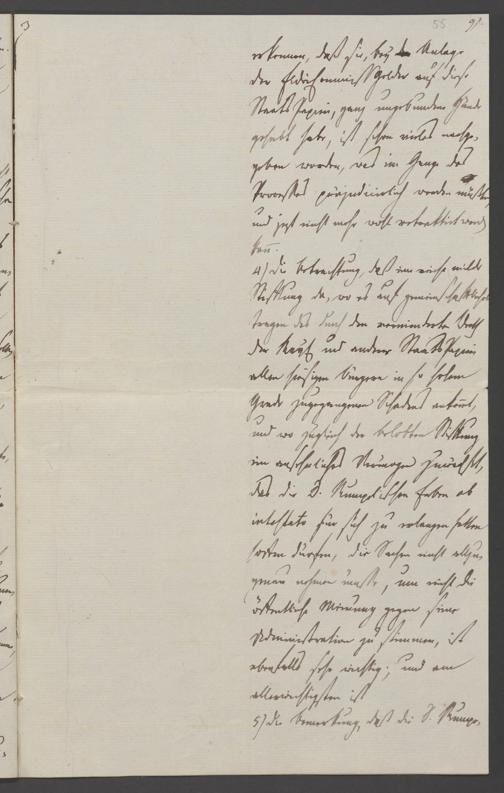 55
erkennen, daß sie, bey der Anlage
der Gelder auf diese
Staats Papiere, ganz ungebundene Hände
gehabt habe, ist schon vieles nachge-
geben worden, was im Gange des
Processes präjudicirlich werden müßte,
und jezt nicht mehr wohl retractirt werden
kan.
4) die Betrachtung, daß eine milde
Stiftung da, wo es auf gemeinschaftliches
tragen des durch den verminderten Werth
der und anderer Staats Papiere
allen hiesigen Bürgern in so hohem
Grade zugegangenen Schadens ankömt,
und wo zugleich der belobten Stiftung
ein ansehnliches Vermögen zuwächst,
das die D. Rumplischen Erben ab
intestato für sich zu erlangen hätten
hoffen dürfen, die Sachen nicht allzu-
genau nehmen muß, um nicht die
öffentliche Meinung gegen seine
Administration zu stimmen, ist
ebenfalls sehr wichtig; und am
allerwichtigsten ist
5) die Bemerkung, daß die D. Rump-